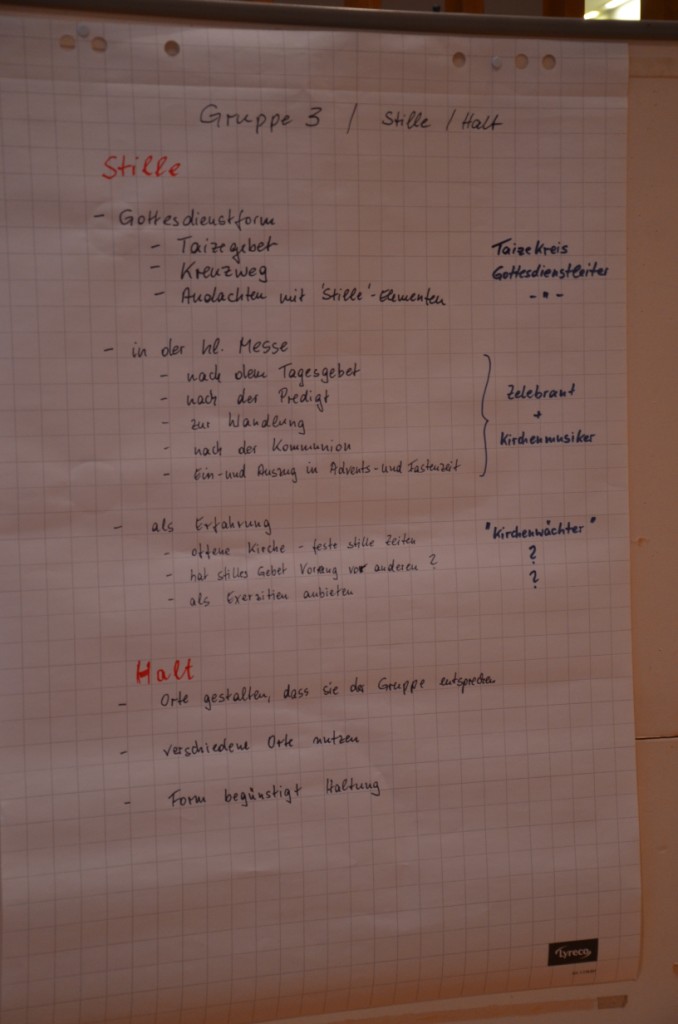 Gruppe 3 / Stille / Halt
Stille
- Gottesdienstform
- Taizegebet Taizekreis
- Kreuzweg Gottesdienstleiter
- Andachten mit 'Stille'-Elementen - " -
- in der hl. Messe
- nach dem Tagesgebet
- nach der Predigt Zelebrant
- zur Wandlung +
- nach der Kommunion Kirchenmusiker
- Ein- und Auszug in Advents- und Fastenzeit
- als Erfahrung "Kirchenwächter"
- offene Kirche - feste stille Zeiten ?
- hat stilles Gebet Vorrang vor anderen ? ?
- als Exerzitien anbieten
Halt
- Orte gestalten, dass sie der Gruppe entsprechen
- verschiedene Orte nutzen
- Form begünstigt Haltung
Tyreco